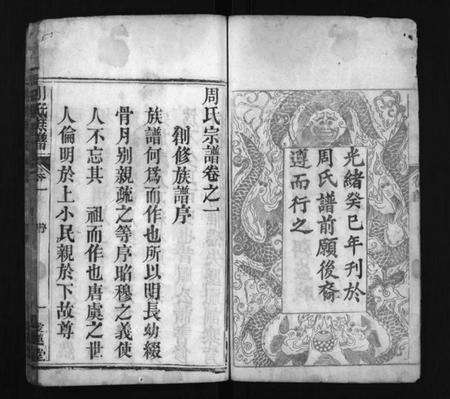 光緒癸巳年刊於
周氏譜前願後裔
遵而行之
周氏宗譜卷之一
創修族譜序
族譜何爲而作也所以明長幼綴
骨月別親疏之等序昭穆之義使
人不忘其　祖而作也唐虞之世
人倫明於上小民親於下故尊